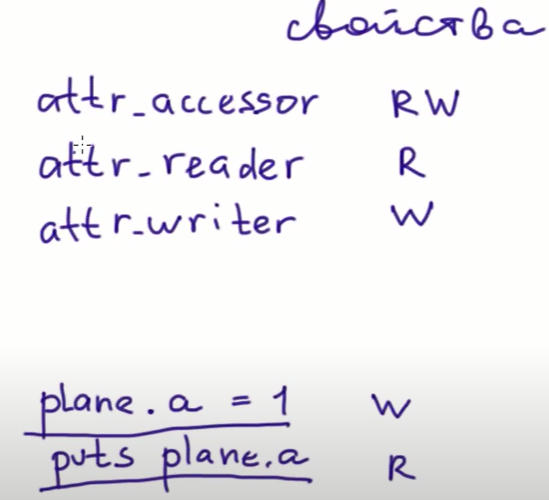 свойства
attr_accessor RW
attr_reader R
attr_writer W
plane.a = 1 W
puts plane.a R